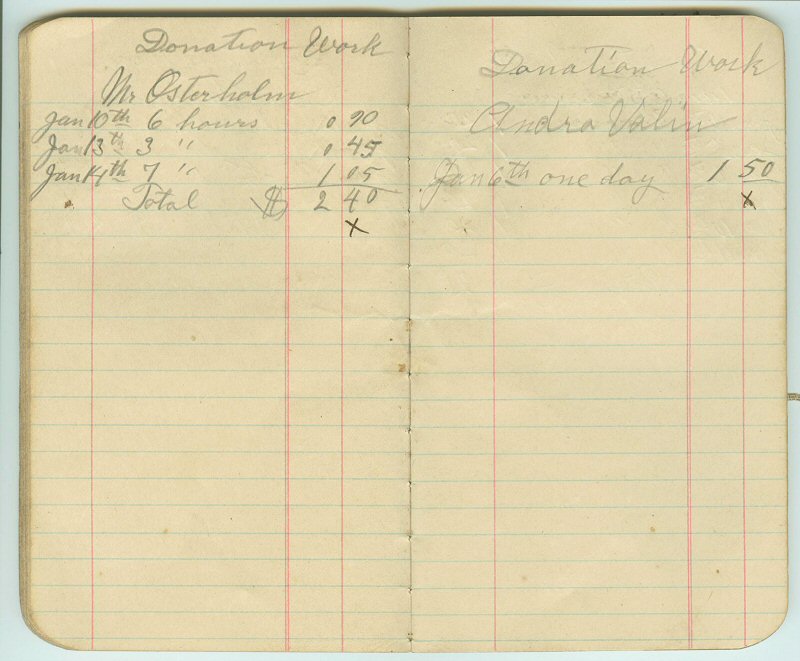 Donation Work
Mr Osterholm
Jan 10th 6 hours 0 90
Jan 13th 3 " 0 45
Jan 14th 7 " 1 05
Total $ 2 40
X
Donation Work
Andro Valin
Jan 6th one day 1 50
X